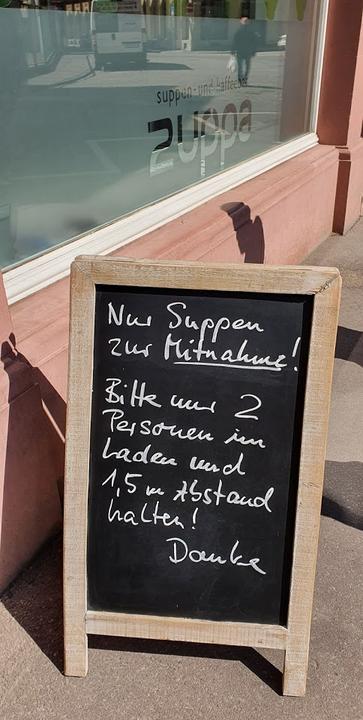 suppen- und kaffeebar
zuppa
Nur Suppen
zur Mitnahme!
Bitte nur 2
Personen im
Laden und
1,5 m Abstand
halten!
Danke